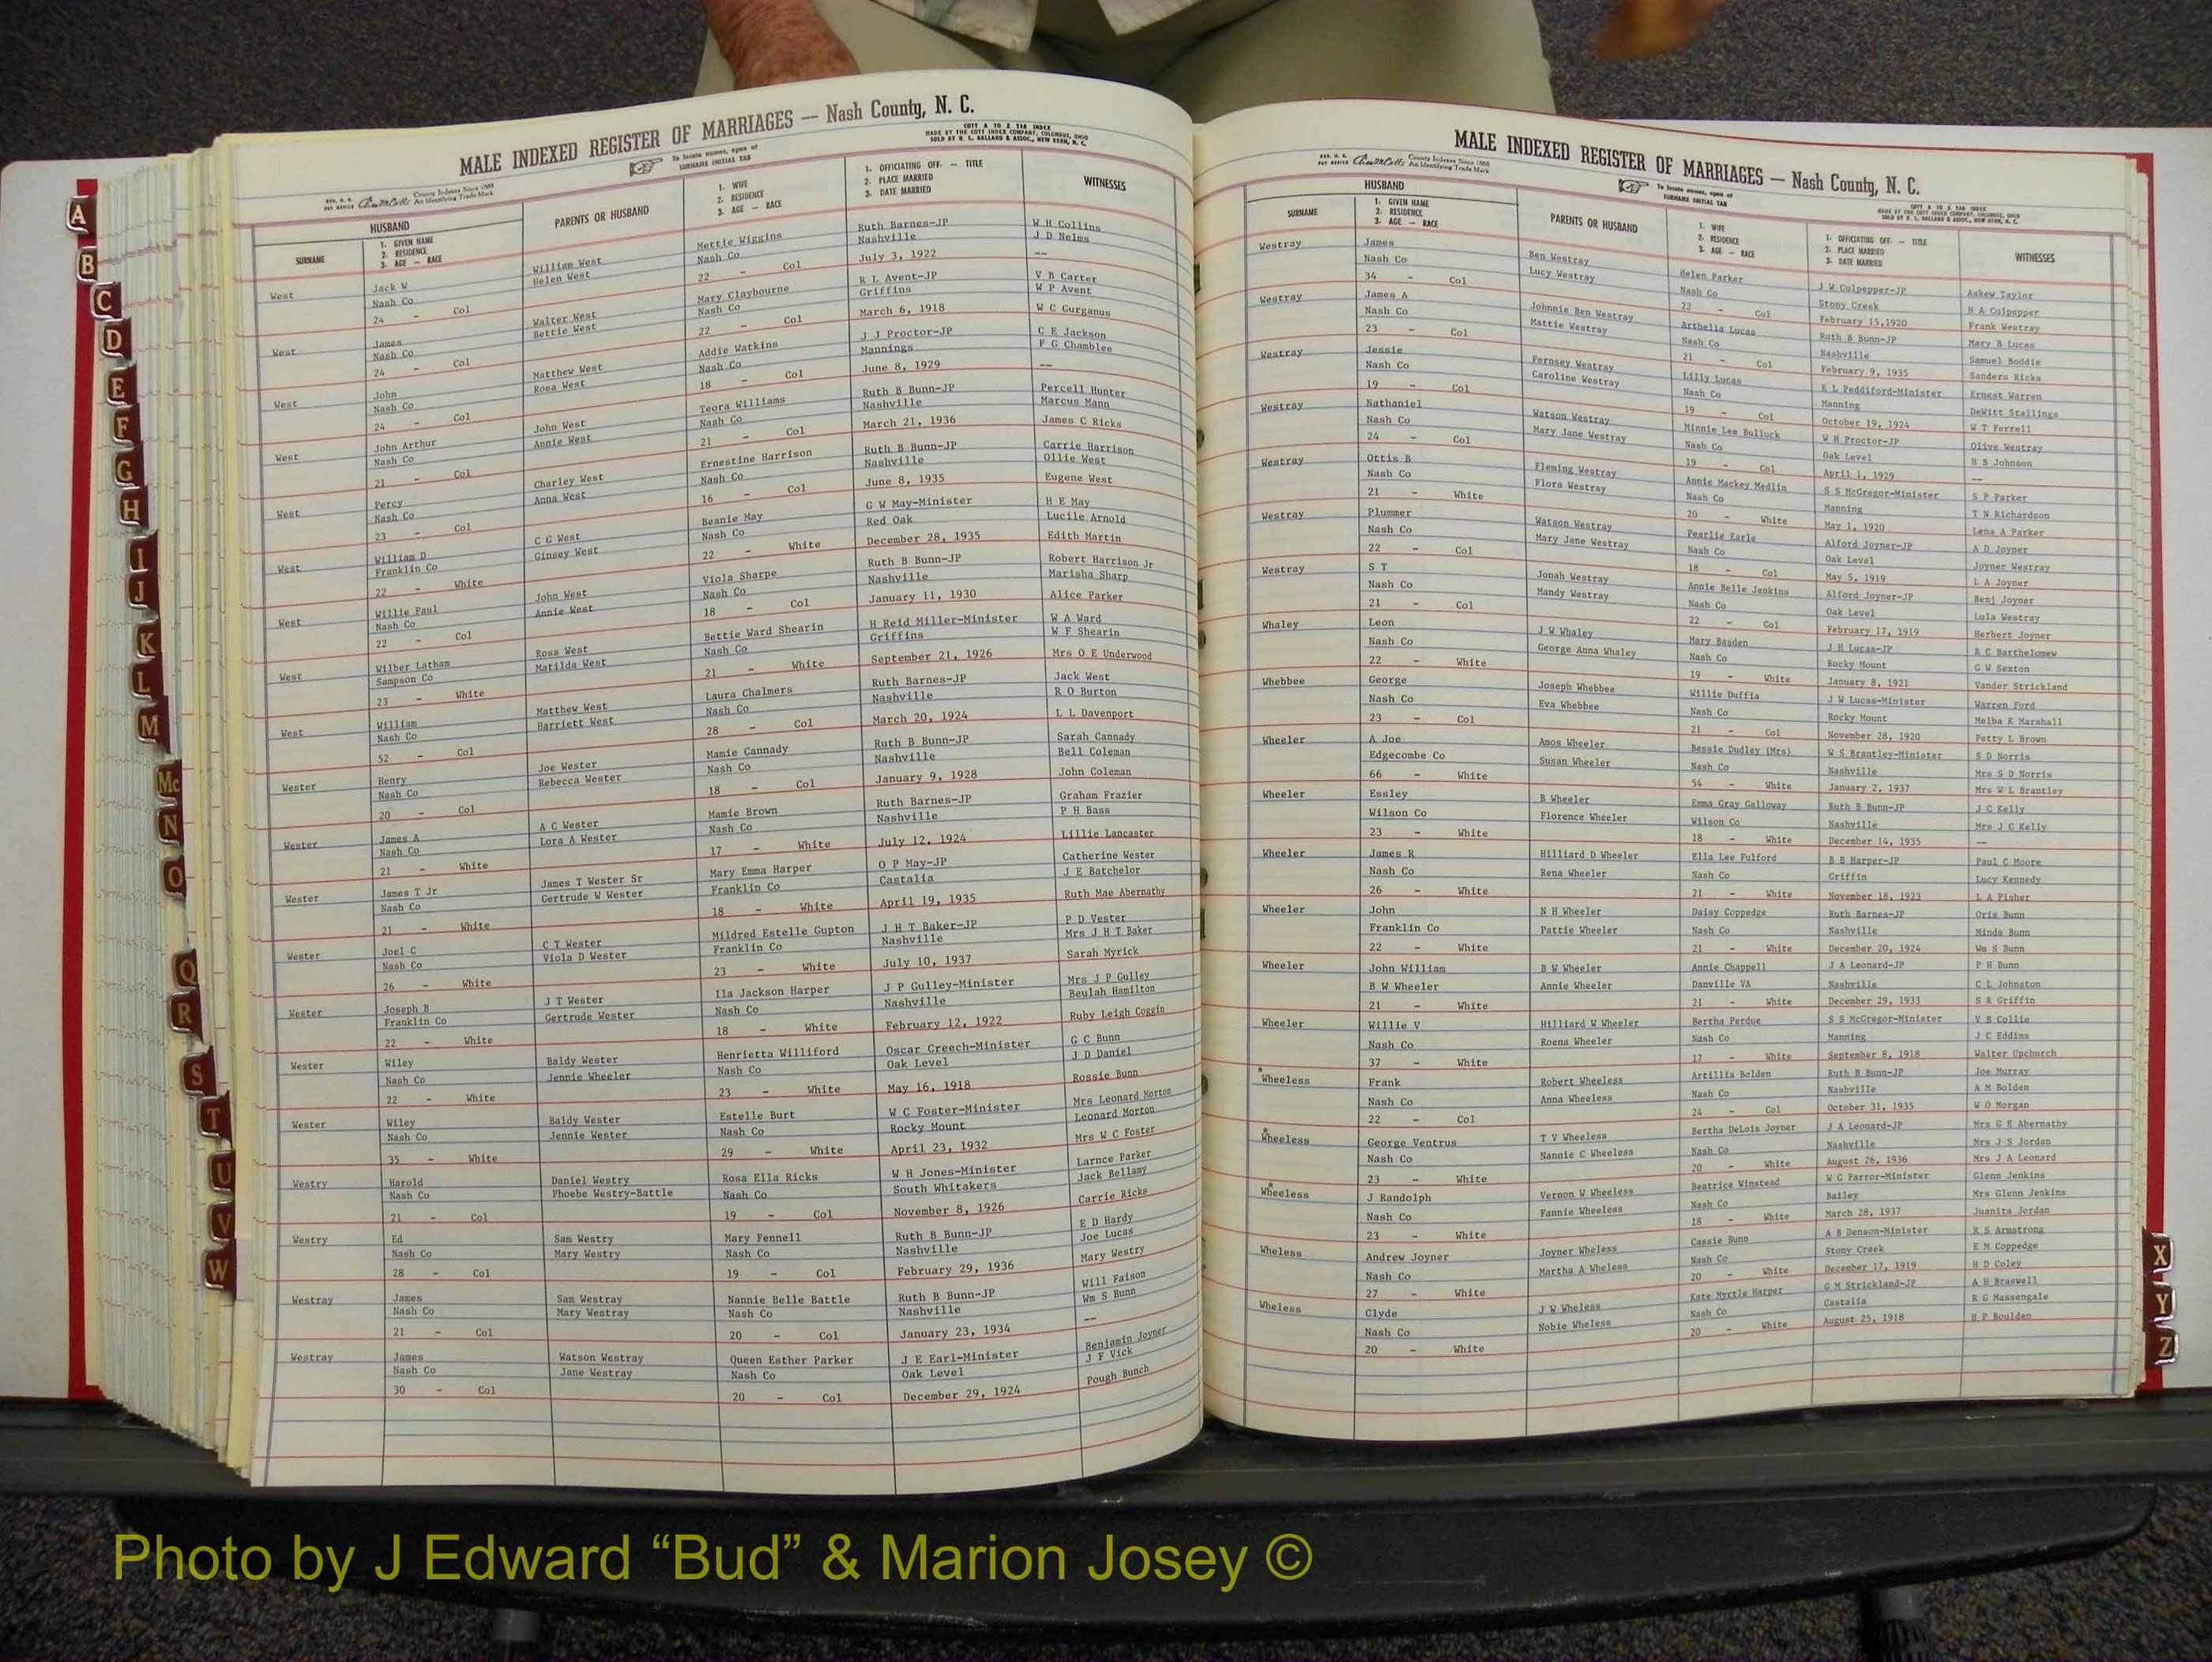 MALE INDEXED REGISTER OF MARRIAGES — Nash County, N. C.
COTT A TO Z TAB INDEX
MADE BY THE COTT INDEX COMPANY, COLUMBUS, OHIO
SOLD BY R. L. BALLARD & ASSOC., NEW BERN, N. C.
To locate names, open at
SURNAME INITIAL TAB
County Indexes Since 1888
An Identifying Trade Mark
HUSBAND
SURNAME
1. GIVEN NAME
2. RESIDENCE
3. AGE — RACE
PARENTS OR HUSBAND
1. WIFE
2. RESIDENCE
3. AGE — RACE
1. OFFICIATING OFF. — TITLE
2. PLACE MARRIED
3. DATE MARRIED
WITNESSES
West Jack W William West Mettie Wiggins Ruth Barnes-JP W H Collins
Nash Co Helen West Nash Co Nashville J D Nelms
24 - Col 22 - Col July 3, 1922 --
West James Walter West Mary Claybourne R L Avent-JP V B Carter
Nash Co Bettie West Nash Co Griffins W P Avent
24 - Col 22 - Col March 6, 1918 W C Gurganus
West John Matthew West Addie Watkins J J Proctor-JP C E Jackson
Nash Co Rosa West Nash Co Mannings F G Chamblee
24 - Col 18 - Col June 8, 1929 --
West John Arthur John West Teora Williams Ruth B Bunn-JP Percell Hunter
Nash Co Annie West Nash Co Nashville Marcus Mann
21 - Col 21 - Col March 21, 1936 James C Ricks
West Percy Charley West Ernestine Harrison Ruth B Bunn-JP Carrie Harrison
Nash Co Anna West Nash Co Nashville Ollie West
23 - Col 16 - Col June 8, 1935 Eugene West
West William D C G West Beanie May G W May-Minister H E May
Franklin Co Ginsey West Nash Co Red Oak Lucile Arnold
22 - White 22 - White December 28, 1935 Edith Martin
West Willie Paul John West Viola Sharpe Ruth B Bunn-JP Robert Harrison Jr
Nash Co Annie West Nash Co Nashville Marisha Sharp
22 - Col 18 - Col January 11, 1930 Alice Parker
West Wilber Latham Ross West Bettie Ward Shearin H Reid Miller-Minister W A Ward
Sampson Co Matilda West Nash Co Griffins W F Shearin
23 - White 21 - White September 21, 1926 Mrs O E Underwood
West William Matthew West Laura Chalmers Ruth Barnes-JP Jack West
Nash Co Harriett West Nash Co Nashville R O Burton
52 - Col 28 - Col March 20, 1924 L L Davenport
Wester Henry Joe Wester Mamie Cannady Ruth B Bunn-JP Sarah Cannady
Nash Co Rebecca Wester Nash Co Nashville Bell Coleman
20 - Col 18 - Col January 9, 1928 John Coleman
Wester James A A C Wester Mamie Brown Ruth Barnes-JP Graham Frazier
Nash Co Lora A Wester Nash Co Nashville P H Bass
21 - White 17 - White July 12, 1924 Lillie Lancaster
Wester James T Jr James T Wester Sr Mary Emma Harper O P May-JP Catherine Wester
Nash Co Gertrude W Wester Franklin Co Castalia J E Batchelor
21 - White 18 - White April 19, 1935 Ruth Mae Abernathy
Wester Joel C C T Wester Mildred Estelle Gupton J H T Baker-JP P D Vester
Nash Co Viola D Wester Franklin Co Nashville Mrs J H T Baker
26 - White 23 - White July 10, 1937 Sarah Myrick
Wester Joseph B J T Wester Ila Jackson Harper J P Gulley-Minister Mrs J P Gulley
Franklin Co Gertrude Wester Nash Co Nashville Beulah Hamilton
22 - White 18 - White February 12, 1922 Ruby Leigh Coggin
Wester Wiley Baldy Wester Henrietta Williford Oscar Creech-Minister G C Bunn
Nash Co Jennie Wheeler Nash Co Oak Level J D Daniel
22 - White 23 - White May 16, 1918 Rossie Bunn
Wester Wiley Baldy Wester Estelle Burt W C Foster-Minister Mrs Leonard Morton
Nash Co Jennie Wester Nash Co Rocky Mount Leonard Morton
35 - White 29 - White April 23, 1932 Mrs W C Foster
Westry Harold Daniel Westry Rosa Ella Ricks W H Jones-Minister Larnce Parker
Nash Co Phoebe Westry-Battle Nash Co South Whitakers Jack Bellamy
21 - Col 19 - Col November 8, 1926 Carrie Ricks
Westry Ed Sam Westry Mary Fennell Ruth B Bunn-JP E D Hardy
Nash Co Mary Westry Nash Co Nashville Joe Lucas
28 - Col 19 - Col February 29, 1936 Mary Westry
Westray James Sam Westray Nannie Belle Battle Ruth B Bunn-JP Will Faison
Nash Co Mary Westray Nash Co Nashville Wm S Bunn
21 - Col 20 - Col January 23, 1934 --
Westray James Watson Westray Queen Esther Parker J E Earl-Minister Benjamin Joyner
Nash Co Jane Westray Nash Co Oak Level J F Vick
30 - Col 20 - Col December 29, 1924 Pough Bunch
MALE INDEXED REGISTER OF MARRIAGES — Nash County, N. C.
County Indexes Since 1888
An Identifying Trade Mark
To locate names, open at
SURNAME INITIAL TAB
COTT A TO Z TAB INDEX
MADE BY THE COTT INDEX COMPANY, COLUMBUS, OHIO
SOLD BY R. L. BALLARD & ASSOC., NEW BERN, N. C.
HUSBAND
SURNAME
1. GIVEN NAME
2. RESIDENCE
3. AGE — RACE
PARENTS OR HUSBAND
1. WIFE
2. RESIDENCE
3. AGE — RACE
1. OFFICIATING OFF. — TITLE
2. PLACE MARRIED
3. DATE MARRIED
WITNESSES
Westray James Ben Westray Helen Parker J W Culpepper-JP Askew Taylor
Nash Co Lucy Westray Nash Co Stony Creek H A Culpepper
34 - Col 22 - Col February 15,1920 Frank Westray
Westray James A Johnnie Ben Westray Arthelia Lucas Ruth B Bunn-JP Mary B Lucas
Nash Co Mattie Westray Nash Co Nashville Samuel Boddie
23 - Col 21 - Col February 9, 1935 Sanders Ricks
Westray Jessie Fernsey Westray Lilly Lucas E L Peddiford-Minister Ernest Warren
Nash Co Caroline Westray Nash Co Manning DeWitt Stallings
19 - Col 19 - Col October 19, 1924 W T Ferrell
Westray Nathaniel Watson Westray Minnie Lee Bulluck W H Proctor-JP Olive Westray
Nash Co Mary Jane Westray Nash Co Oak Level H B Johnson
24 - Col 19 - Col April 1, 1929 --
Westray Ottis B Fleming Westray Annie Mackey Medlin S S McGregor-Minister S P Parker
Nash Co Flora Westray Nash Co Manning T N Richardson
21 - White 20 - White May 1, 1920 Lena A Parker
Westray Plummer Watson Westray Pearlie Earle Alford Joyner-JP A D Joyner
Nash Co Mary Jane Westray Nash Co Oak Level Joyner Westray
22 - Col 18 - Col May 5, 1919 L A Joyner
Westray S T Jonah Westray Annie Belle Jenkins Alford Joyner-JP Benj Joyner
Nash Co Mandy Westray Nash Co Oak Level Lula Westray
21 - Col 22 - Col February 17, 1919 Herbert Joyner
Whaley Leon J W Whaley Mary Basden J H Lucas-JP R C Barthelomew
Nash Co George Anna Whaley Nash Co Rocky Mount G W Sexton
22 - White 19 - White January 8, 1921 Vander Strickland
Whebbee George Joseph Whebbee Willie Duffia J W Lucas-Minister Warren Ford
Nash Co Eva Whebbee Nash Co Rocky Mount Melba K Marshall
23 - Col 21 - Col November 28, 1920 Petty L Brown
Wheeler A Joe Amos Wheeler Bessie Dudley (Mrs) W S Brantley-Minister S D Norris
Edgecombe Co Susan Wheeler Nash Co Nashville Mrs S D Norris
66 - White 54 - White January 2, 1937 Mrs W L Brantley
Wheeler Essley B Wheeler Emma Gray Galloway Ruth B Bunn-JP J C Kelly
Wilson Co Florence Wheeler Wilson Co Nashville Mrs J C Kelly
23 - White 18 - White December 14, 1935 --
Wheeler James R Hilliard D Wheeler Ella Lee Fulford B B Harper-JP Paul C Moore
Nash Co Rena Wheeler Nash Co Griffin Lucy Kennedy
26 - White 21 - White November 18, 1923 L A Fisher
Wheeler John N H Wheeler Daisy Coppedge Ruth Barnes-JP Oris Bunn
Franklin Co Pattie Wheeler Nash Co Nashville Minda Bunn
22 - White 21 - White December 20, 1924 Wm S Bunn
Wheeler John William B W Wheeler Annie Chappell J A Leonard-JP P H Bunn
B W Wheeler Annie Wheeler Danville VA Nashville C L Johnston
21 - White 21 - White December 29, 1933 S R Griffin
Wheeler Willie V Hilliard W Wheeler Bertha Perdue S S McGregor-Minister V B Collie
Nash Co Roena Wheeler Nash Co Manning J C Eddins
37 - White 17 - White September 8, 1918 Walter Upchurch
*Wheeless Frank Robert Wheeless Artillia Bolden Ruth B Bunn-JP Joe Murray
Nash Co Anna Wheeless Nash Co Nashville A M Bolden
22 - Col 24 - Col October 31, 1935 W O Morgan
*Wheeless George Ventrus T V Wheeless Bertha DeLois Joyner J A Leonard-JP Mrs G E Abernathy
Nash Co Nannie C Wheeless Nash Co Nashville Mrs J S Jordan
23 - White 20 - White August 26, 1936 Mrs J A Leonard
*Wheeless J Randolph Vernon W Wheeless Beatrice Winstead W G Farror-Minister Glenn Jenkins
Nash Co Fannie Wheeless Nash Co Bailey Mrs Glenn Jenkins
23 - White 18 - White March 28, 1937 Juanita Jordan
Wheless Andrew Joyner Joyner Wheless Cassie Bunn A B Denson-Minister R S Armstrong
Nash Co Martha A Wheless Nash Co Stony Creek E M Coppedge
27 - White 20 - White December 17, 1919 H D Coley
Wheless Clyde J W Wheless Kate Myrtle Harper G M Strickland-JP A H Braswell
Nash Co Nobie Wheless Nash Co Castalia R G Massengale
20 - White 20 - White August 25, 1918 H P Boulden
A
B
C
D
E
F
G
H
I
J
K
L
M
Mc
N
O
Q
R
S
T
U
V
W
X
Y
Z
Photo by J Edward “Bud” & Marion Josey ©